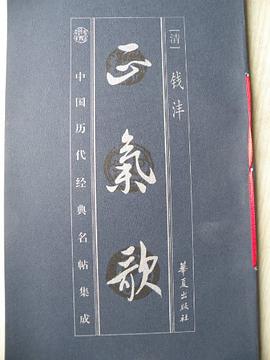 [清] 钱沣
正氣歌
中国历代经典名帖集成
华夏出版社